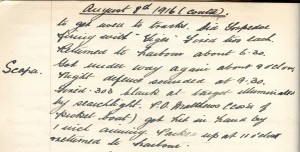 August 8th 1916 (contd).
to get over to tracks. Did torpedo
firing with "  " Fired two each.
Returned to harbour about 6.30.
Scapa. Got under way again about 9 o'clock,
Night defence sounded at 9.30.
Fired 303 blank at target illuminated
by searchlight. P.O. Matthews (coxn of
picket boat) got hit in hand by
1 inch aiming. Packed up at 11 o'clock
returned to harbour.